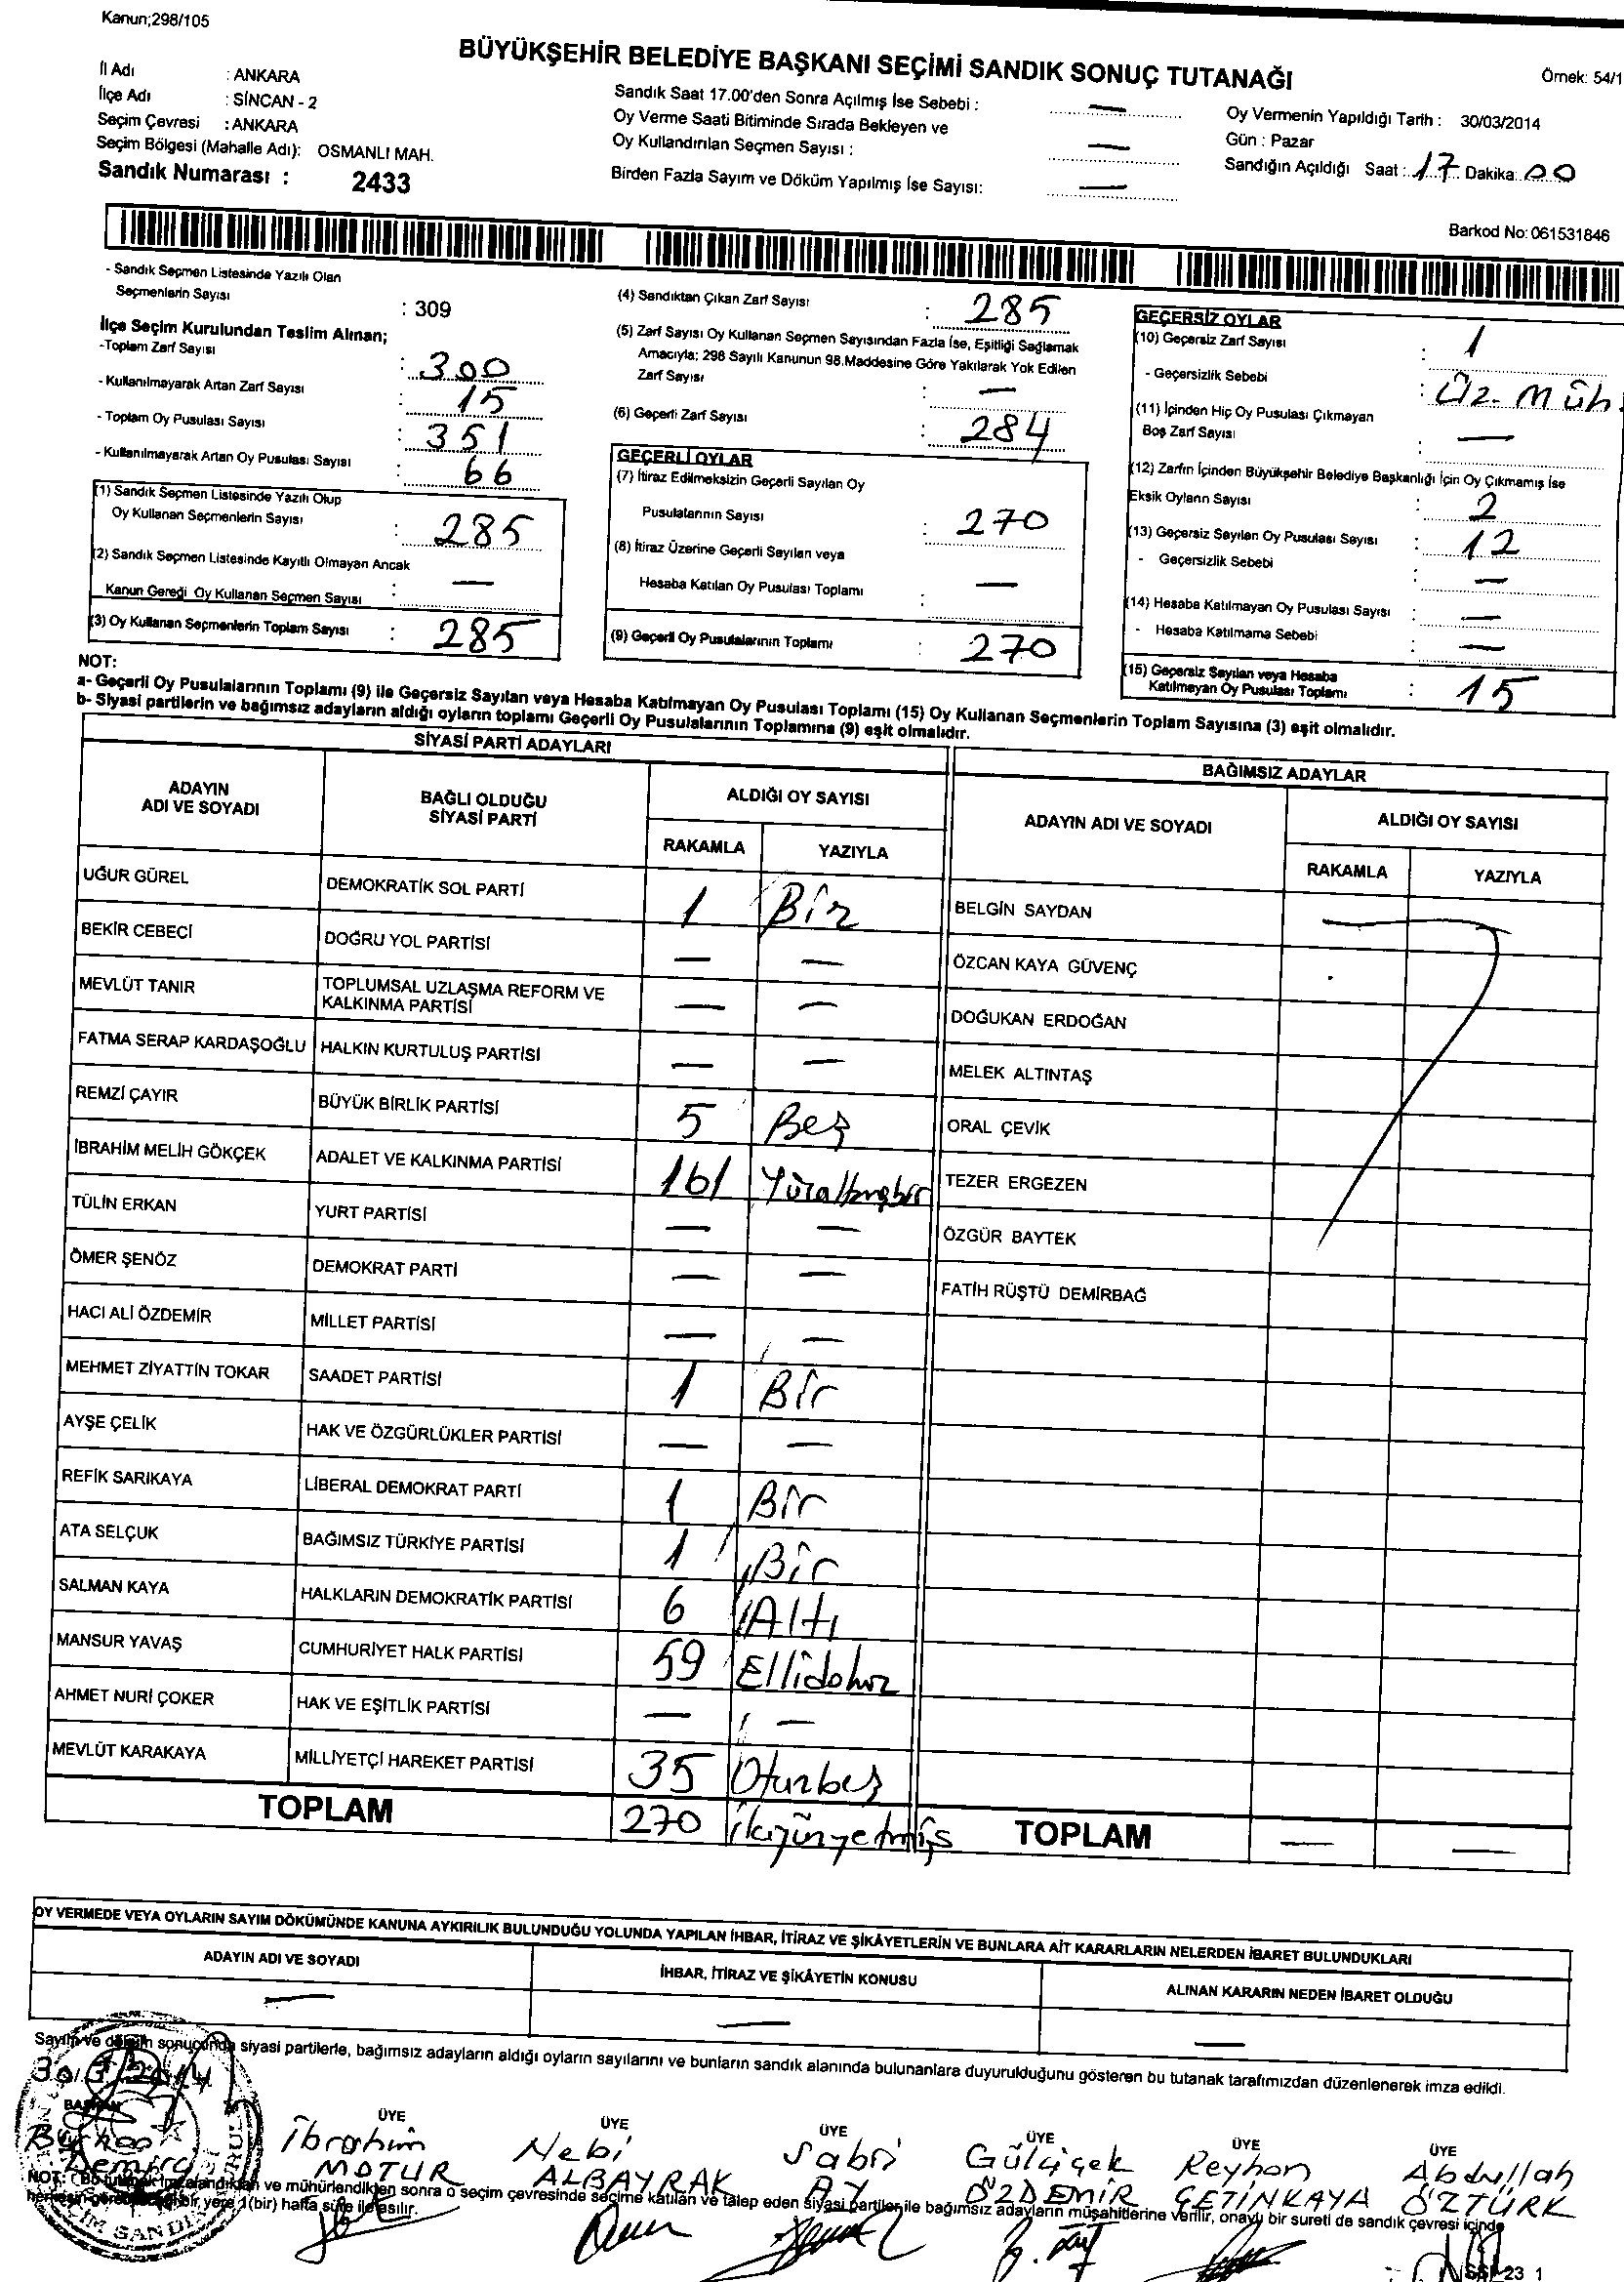 Kanun;298/105
BÜYÜKŞEHİR BELEDİYE BAŞKANI SEÇİMİ SANDIK SONUÇ TUTANAĞI
Örnek: 54/1
İl Adı : ANKARA
İlçe Adı : SİNCAN - 2
Seçim Çevresi : ANKARA
Seçim Bölgesi (Mahalle Adı): OSMANLI MAH.
Sandık Numarası : 2433
Sandık Saat 17.00'den Sonra Açılmış İse Sebebi : —
Oy Verme Saati Bitiminde Sırada Bekleyen ve
Oy Kullandırılan Seçmen Sayısı : —
Birden Fazla Sayım ve Döküm Yapılmış İse Sayısı: —
Oy Vermenin Yapıldığı Tarih : 30/03/2014
Gün : Pazar
Sandığın Açıldığı Saat : 17 Dakika: 00
Barkod No: 061531846
- Sandık Seçmen Listesinde Yazılı Olan
Seçmenlerin Sayısı : 309
İlçe Seçim Kurulundan Teslim Alınan;
-Toplam Zarf Sayısı : 300
- Kullanılmayarak Artan Zarf Sayısı : 15
- Toplam Oy Pusulası Sayısı : 351
- Kullanılmayarak Artan Oy Pusulası Sayısı : 66
(1) Sandık Seçmen Listesinde Yazılı Olup
Oy Kullanan Seçmenlerin Sayısı : 285
(2) Sandık Seçmen Listesinde Kayıtlı Olmayan Ancak
Kanun Gereği Oy Kullanan Seçmen Sayısı : —
(3) Oy Kullanan Seçmenlerin Toplam Sayısı : 285
(4) Sandıktan Çıkan Zarf Sayısı : 285
(5) Zarf Sayısı Oy Kullanan Seçmen Sayısından Fazla İse, Eşitliği Sağlamak
Amacıyla; 298 Sayılı Kanunun 98.Maddesine Göre Yakılarak Yok Edilen
Zarf Sayısı : —
(6) Geçerli Zarf Sayısı : 284
GEÇERLİ OYLAR
(7) İtiraz Edilmeksizin Geçerli Sayılan Oy
Pusulalarının Sayısı : 270
(8) İtiraz Üzerine Geçerli Sayılan veya
Hesaba Katılan Oy Pusulası Toplamı : —
(9) Geçerli Oy Pusulalarının Toplamı : 270
GEÇERSİZ OYLAR
(10) Geçersiz Zarf Sayısı : 1
- Geçersizlik Sebebi : Üz. Müh.
(11) İçinden Hiç Oy Pusulası Çıkmayan
Boş Zarf Sayısı : —
(12) Zarfın İçinden Büyükşehir Belediye Başkanlığı İçin Oy Çıkmamış İse
Eksik Oyların Sayısı : 2
(13) Geçersiz Sayılan Oy Pusulası Sayısı : 12
- Geçersizlik Sebebi : —
(14) Hesaba Katılmayan Oy Pusulası Sayısı : —
- Hesaba Katılmama Sebebi : —
(15) Geçersiz Sayılan veya Hesaba
Katılmayan Oy Pusulası Toplamı : 15
NOT:
a- Geçerli Oy Pusulalarının Toplamı (9) ile Geçersiz Sayılan veya Hesaba Katılmayan Oy Pusulası Toplamı (15) Oy Kullanan Seçmenlerin Toplam Sayısına (3) eşit olmalıdır.
b- Siyasi partilerin ve bağımsız adayların aldığı oyların toplamı Geçerli Oy Pusulalarının Toplamına (9) eşit olmalıdır.
SİYASİ PARTİ ADAYLARI
ADAYIN ADI VE SOYADI | BAĞLI OLDUĞU SİYASİ PARTİ | ALDIĞI OY SAYISI
RAKAMLA | YAZIYLA
UĞUR GÜREL | DEMOKRATİK SOL PARTİ | 1 | Bir
BEKİR CEBECİ | DOĞRU YOL PARTİSİ | — | —
MEVLÜT TANIR | TOPLUMSAL UZLAŞMA REFORM VE KALKINMA PARTİSİ | — | —
FATMA SERAP KARDAŞOĞLU | HALKIN KURTULUŞ PARTİSİ | — | —
REMZİ ÇAYIR | BÜYÜK BİRLİK PARTİSİ | 5 | Beş
İBRAHİM MELİH GÖKÇEK | ADALET VE KALKINMA PARTİSİ | 161 | Yüzaltmışbir
TÜLİN ERKAN | YURT PARTİSİ | — | —
ÖMER ŞENÖZ | DEMOKRAT PARTİ | — | —
HACI ALİ ÖZDEMİR | MİLLET PARTİSİ | — | —
MEHMET ZİYATTİN TOKAR | SAADET PARTİSİ | 1 | Bir
AYŞE ÇELİK | HAK VE ÖZGÜRLÜKLER PARTİSİ | — | —
REFİK SARIKAYA | LİBERAL DEMOKRAT PARTİ | 1 | Bir
ATA SELÇUK | BAĞIMSIZ TÜRKİYE PARTİSİ | 1 | Bir
SALMAN KAYA | HALKLARIN DEMOKRATİK PARTİSİ | 6 | Altı
MANSUR YAVAŞ | CUMHURİYET HALK PARTİSİ | 59 | Ellidokuz
AHMET NURİ ÇOKER | HAK VE EŞİTLİK PARTİSİ | — | —
MEVLÜT KARAKAYA | MİLLİYETÇİ HAREKET PARTİSİ | 35 | Otuzbeş
TOPLAM | 270 | ikiyüzyetmiş
BAĞIMSIZ ADAYLAR
ADAYIN ADI VE SOYADI | ALDIĞI OY SAYISI
RAKAMLA | YAZIYLA
BELGİN SAYDAN
ÖZCAN KAYA GÜVENÇ
DOĞUKAN ERDOĞAN
MELEK ALTINTAŞ
ORAL ÇEVİK
TEZER ERGEZEN
ÖZGÜR BAYTEK
FATİH RÜŞTÜ DEMİRBAĞ
TOPLAM | — | —
OY VERMEDE VEYA OYLARIN SAYIM DÖKÜMÜNDE KANUNA AYKIRILIK BULUNDUĞU YOLUNDA YAPILAN İHBAR, İTİRAZ VE ŞİKÂYETLERİN VE BUNLARA AİT KARARLARIN NELERDEN İBARET BULUNDUKLARI
ADAYIN ADI VE SOYADI | İHBAR, İTİRAZ VE ŞİKÂYETİN KONUSU | ALINAN KARARIN NEDEN İBARET OLDUĞU
— | — | —
Sayım ve döküm sonucunda siyasi partilerle, bağımsız adayların aldığı oyların sayılarını ve bunların sandık alanında bulunanlara duyurulduğunu gösteren bu tutanak tarafımızdan düzenlenerek imza edildi.
30/3/2014
BAŞKAN ÜYE ÜYE ÜYE ÜYE ÜYE ÜYE
İbrahim Nebi Sabri Gülçiçek Reyhan Abdullah
MOTUR ALBAYRAK AY ÖZDEMİR ÇETİNKAYA ÖZTÜRK
NOT: Bu tutanak imzalandıktan ve mühürlendikten sonra o seçim çevresinde seçime katılan ve talep eden siyasi partiler ile bağımsız adayların müşahitlerine verilir, onaylı bir sureti de sandık çevresi içinde
herkesin görebileceği bir yere 1(bir) hafta süre ile asılır.
23 1